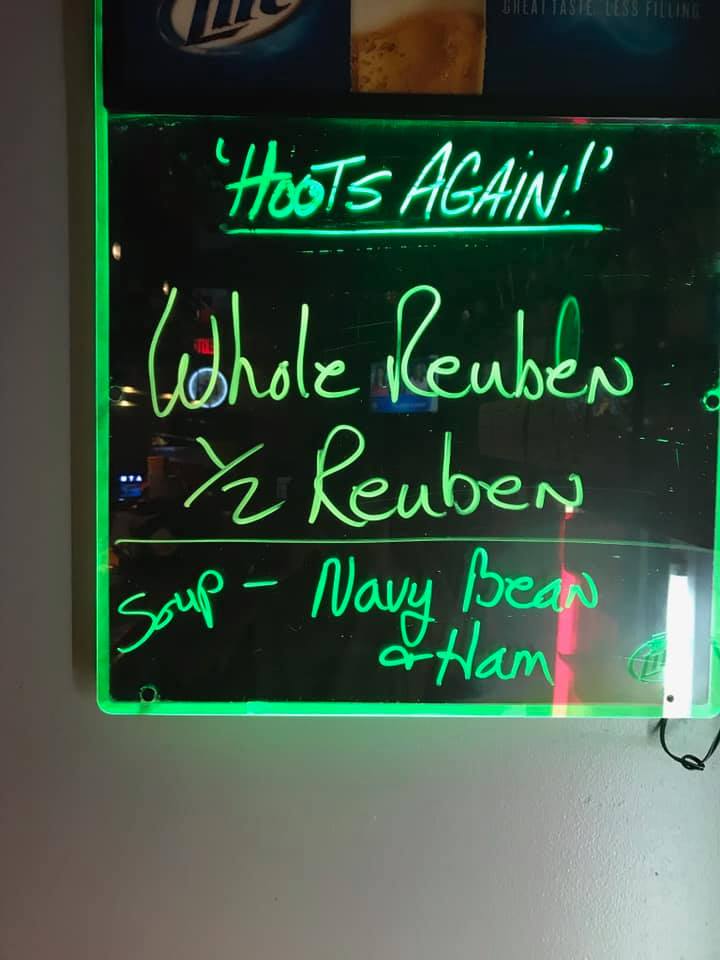 Lite
GREAT TASTE LESS FILLING
'HOOTS AGAIN!'
Whole Reuben
1/2 Reuben
Soup - Navy Bean
& Ham
Lite